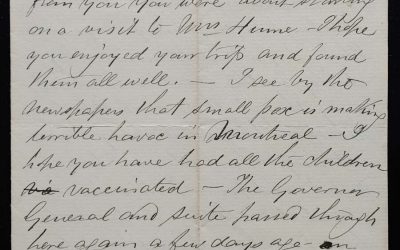 from you you were about starting
on a visit to Mrs Hume - I hope
you enjoyed your trip and found
them all well. - I see by the
newspapers that small pox is making
terrible havoc in Montreal - I
hope you have had all the children
vaccinated - The Governor
General and suite passed through
here again a few days ago - on